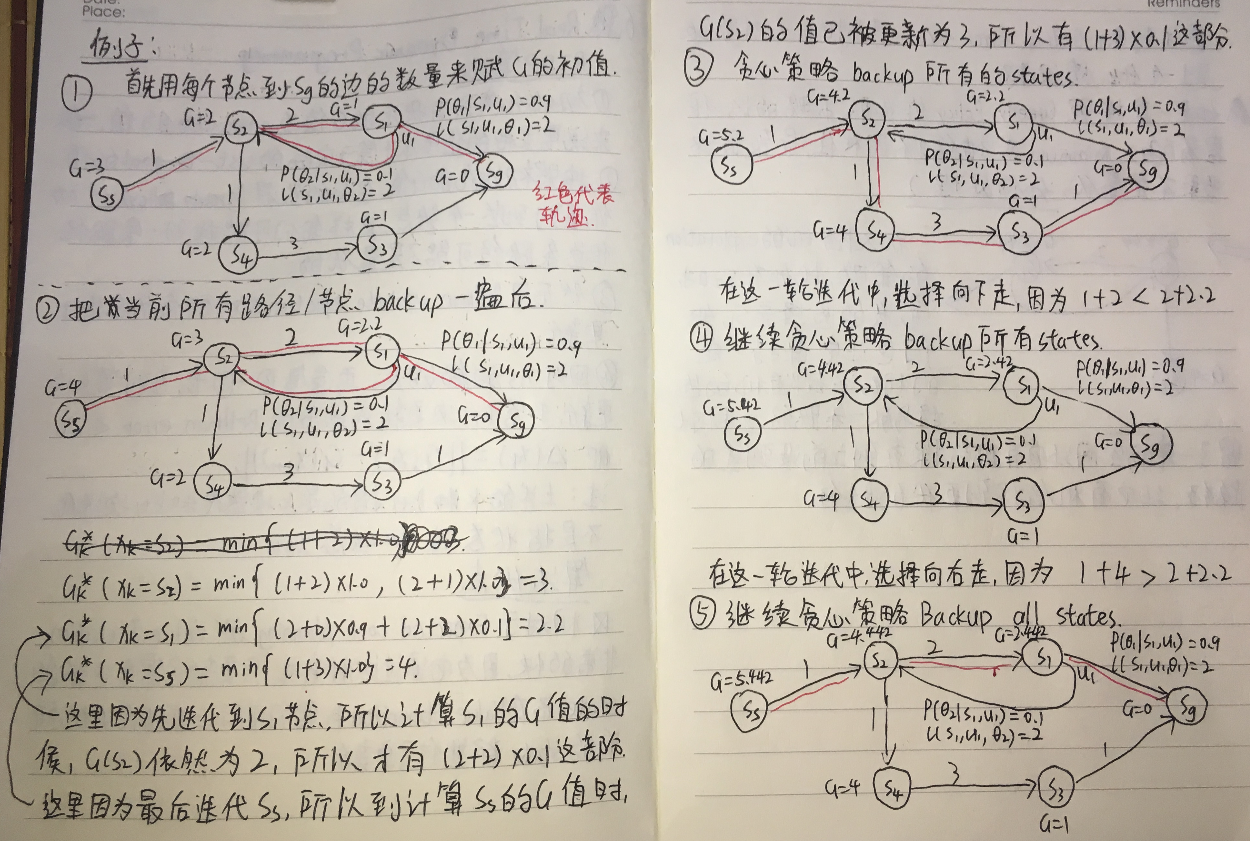 Date:
Place:
例子:
① 首先用每个节点到Sg的边的数量来赋G的初值.
G=2
S2
2
G=1
S1
u1
P(θ1|S1,u1)=0.9
l(S1,u1,θ1)=2
G=3
Ss
1
P(θ2|S1,u1)=0.1
l(S1,u1,θ2)=2
G=0
Sg
红色代表
轨迹.
1
G=2
S4
3
G=1
S3
② 把当前所有路径/节点 backup 一遍后.
G=3
S2
2
G=2.2
S1
u1
P(θ1|S1,u1)=0.9
l(S1,u1,θ1)=2
G=4
Ss
1
P(θ2|S1,u1)=0.1
l(S1,u1,θ2)=2
G=0
Sg
1
G=2
S4
3
G=1
S3
1
Gk*(xk=S2) = min{(1+2)×1.0, (2+1)×1.0}=3.
Gk*(xk=S1) = min{(2+0)×0.9+(2+2)×0.1}=2.2
Gk*(xk=Ss) = min{(1+3)×1.0}=4.
这里因为先迭代到S1节点, 所以计算S1的G值的时
候, G(S2)依然为2, 所以才有(2+2)×0.1这部分
这里因为最后迭代Ss, 所以到计算Ss的G值时,
Reminders
G(S2)的值已被更新为3, 所以有(1+3)×0.1这部分.
③ 贪心策略 backup 所有的states.
G=4.2
S2
2
G=2.2
S1
u1
P(θ1|S1,u1)=0.9
l(S1,u1,θ1)=2
G=5.2
Ss
1
P(θ2|S1,u1)=0.1
l(S1,u1,θ2)=2
G=0
Sg
1
G=4
S4
3
G=1
S3
1
在这一轮迭代中,选择向下走,因为 1+2<2+2.2
④ 继续贪心策略 backup所有states.
G=4.42
S2
2
G=2.42
S1
u1
P(θ1|S1,u1)=0.9
l(S1,u1,θ1)=2
G=5.42
Ss
1
P(θ2|S1,u1)=0.1
l(S1,u1,θ2)=2
G=0
Sg
1
G=4
S4
3
S3
G=1
1
在这一轮迭代中,选择向右走,因为 1+4>2+2.2
⑤ 继续贪心策略 Backup all states.
G=4.442
S2
2
G=2.442
S1
u1
P(θ1|S1,u1)=0.9
l(S1,u1,θ1)=2
G=5.442
Ss
1
P(θ2|S1,u1)=0.1
l(S1,u1,θ2)=2
G=0
Sg
1
G=4
S4
3
S3
G=1
1